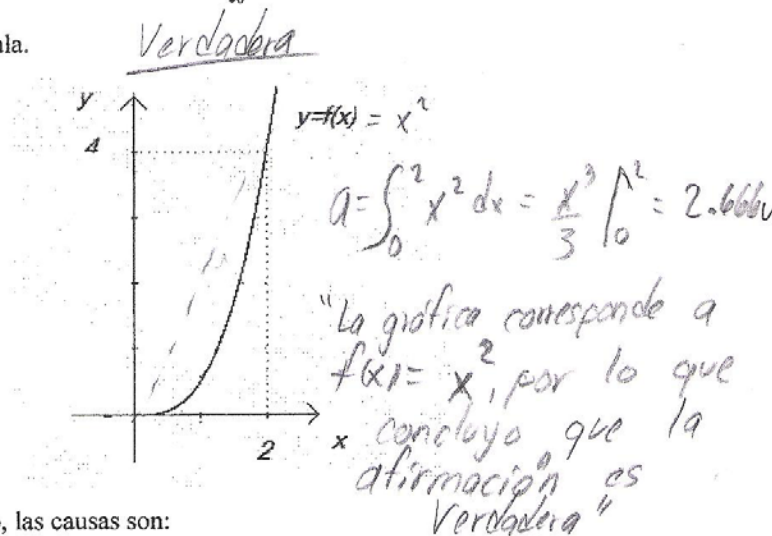 ala.
Verdadera
y
y=f(x) = x²
4
a=∫₀² x² dx = x³/3 |₀² = 2.666
"La gráfica corresponde a
f(x)= x², por lo que
concluyo que la
afirmación es
Verdadera"
2
x
, las causas son: